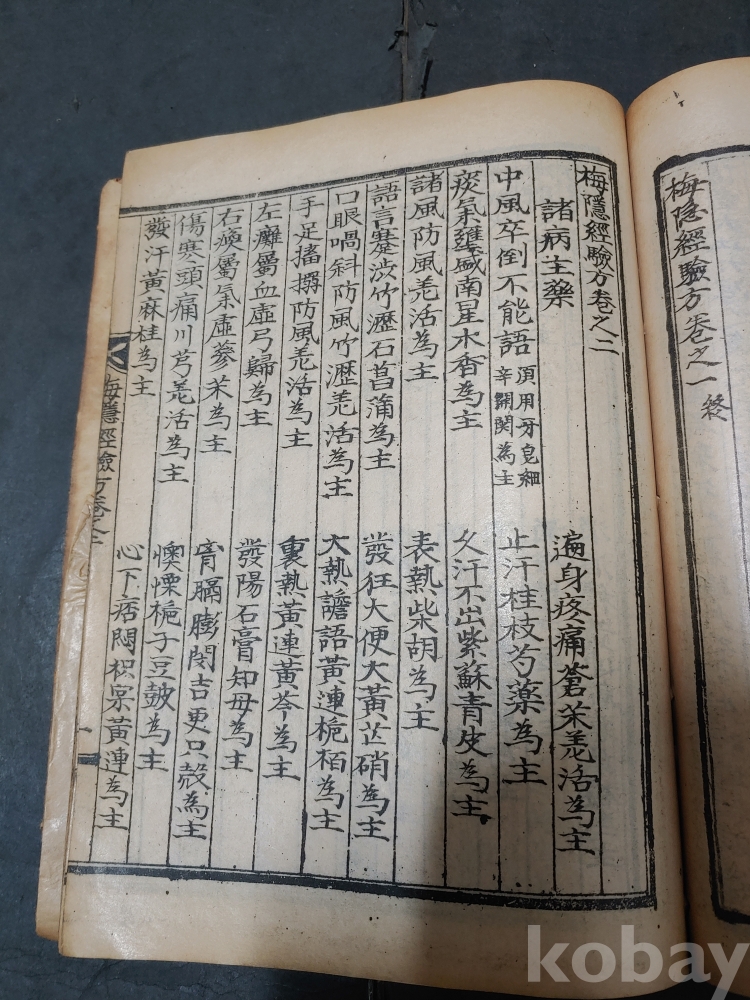 梅隱經驗方卷之一終
梅隱經驗方卷之二
諸病主藥
遍身疼痛蒼朮羌活為主
中風卒倒不能語須用牙皂細辛開関為主
止汗桂枝芍藥為主
痰氣壅盛南星木香為主
久汗不出紫蘇青皮為主
諸風防風羌活為主
表熱柴胡為主
語言蹇澁竹瀝石菖蒲為主
發狂大便大黃芒硝為主
口眼喎斜防風竹瀝羌活為主
大熱譫語黃連梔栢為主
手足搐搦防風羌活為主
裏熱黃連黃芩為主
左癱屬血虛弓歸為主
發陽石膏知母為主
右瘓屬氣虛蔘朮為主
膨悶吉更只殼為主
傷寒頭痛川芎羌活為主
懊憹梔子豆豉為主
發汗黃麻桂為主
心下痞悶枳宲黃連為主
梅隱經驗方卷之二
一
kobay